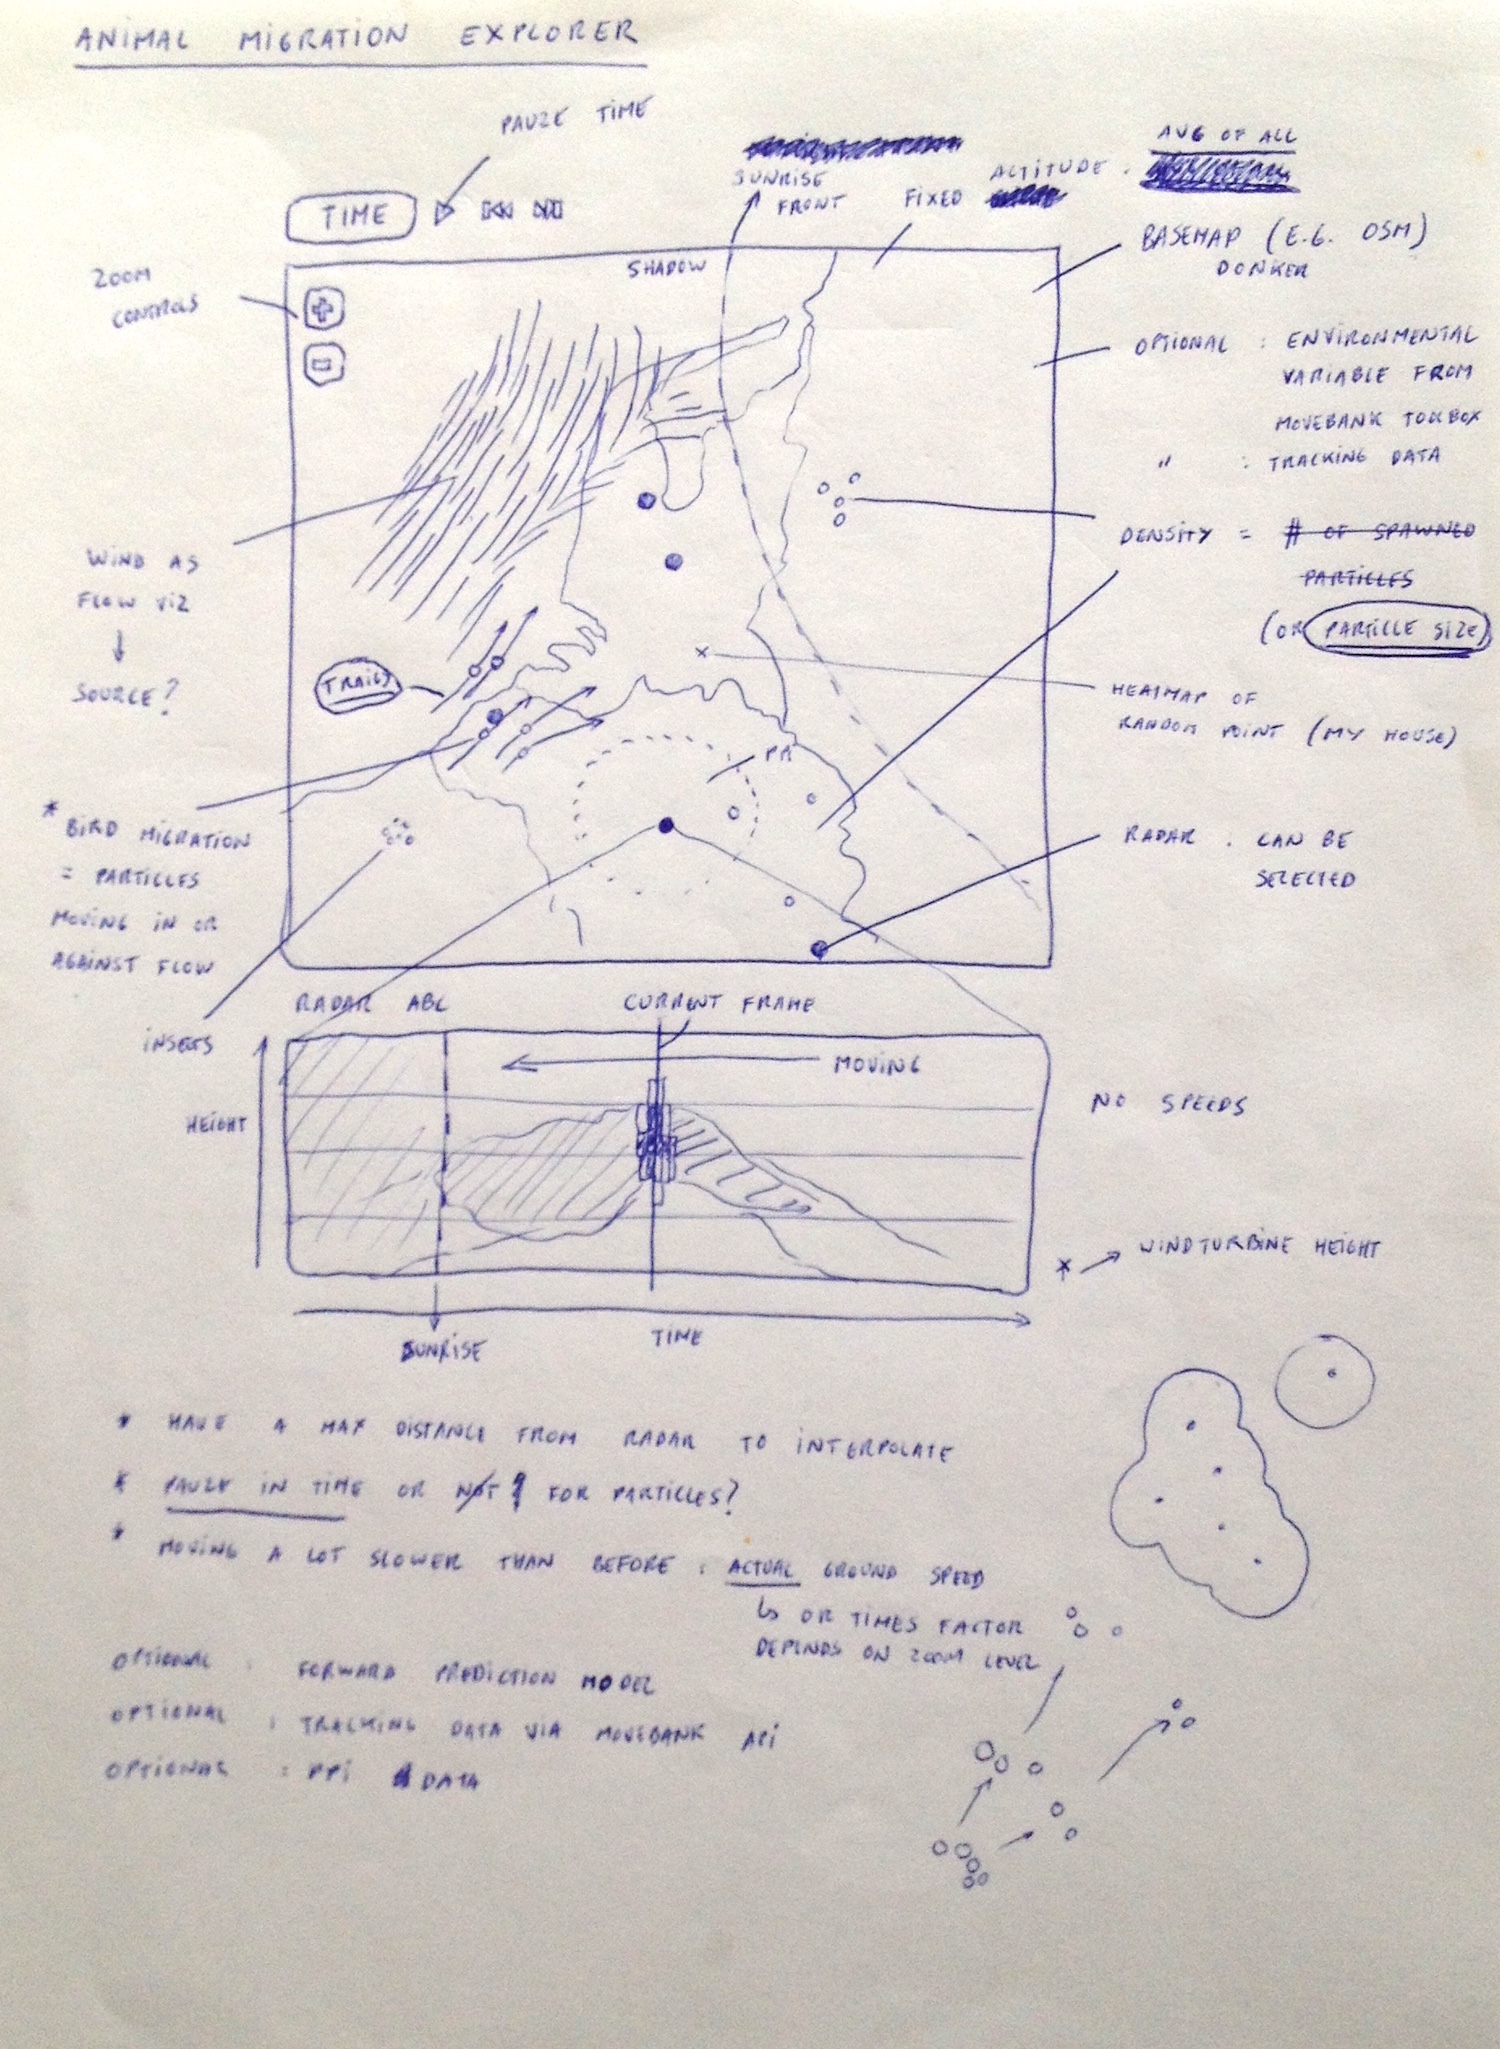 ANIMAL MIGRATION EXPLORER
PAUZE TIME
TIME
SUNRISE
FRONT
FIXED ALTITUDE .
AVG OF ALL
ZOOM
CONTROLS
SHADOW
BASEMAP (E.G. OSM)
DONKER
OPTIONAL : ENVIRONMENTAL
VARIABLE FROM
MOVEBANK TOOLBOX
" : TRACKING DATA
DENSITY = # OF SPAWNED
PARTICLES
(OR PARTICLE SIZE)
WIND AS
FLOW VIZ
SOURCE?
TRAILS
HEATMAP OF
RANDOM POINT (MY HOUSE)
PPI
RADAR . CAN BE
SELECTED
* BIRD MIGRATION
= PARTICLES
MOVING IN OR
AGAINST FLOW
INSECTS
RADAR ABC
CURRENT FRAME
MOVING
HEIGHT
NO SPEEDS
* WINDTURBINE HEIGHT
SUNRISE
TIME
* HAVE A MAX DISTANCE FROM RADAR TO INTERPOLATE
* PAUZE IN TIME OR NOT FOR PARTICLES?
* MOVING A LOT SLOWER THAN BEFORE : ACTUAL GROUND SPEED
OR TIMES FACTOR
DEPENDS ON ZOOM LEVEL
OPTIONAL : FORWARD PREDICTION MODEL
OPTIONAL : TRACKING DATA VIA MOVEBANK API
OPTIONAL : PPI DATA